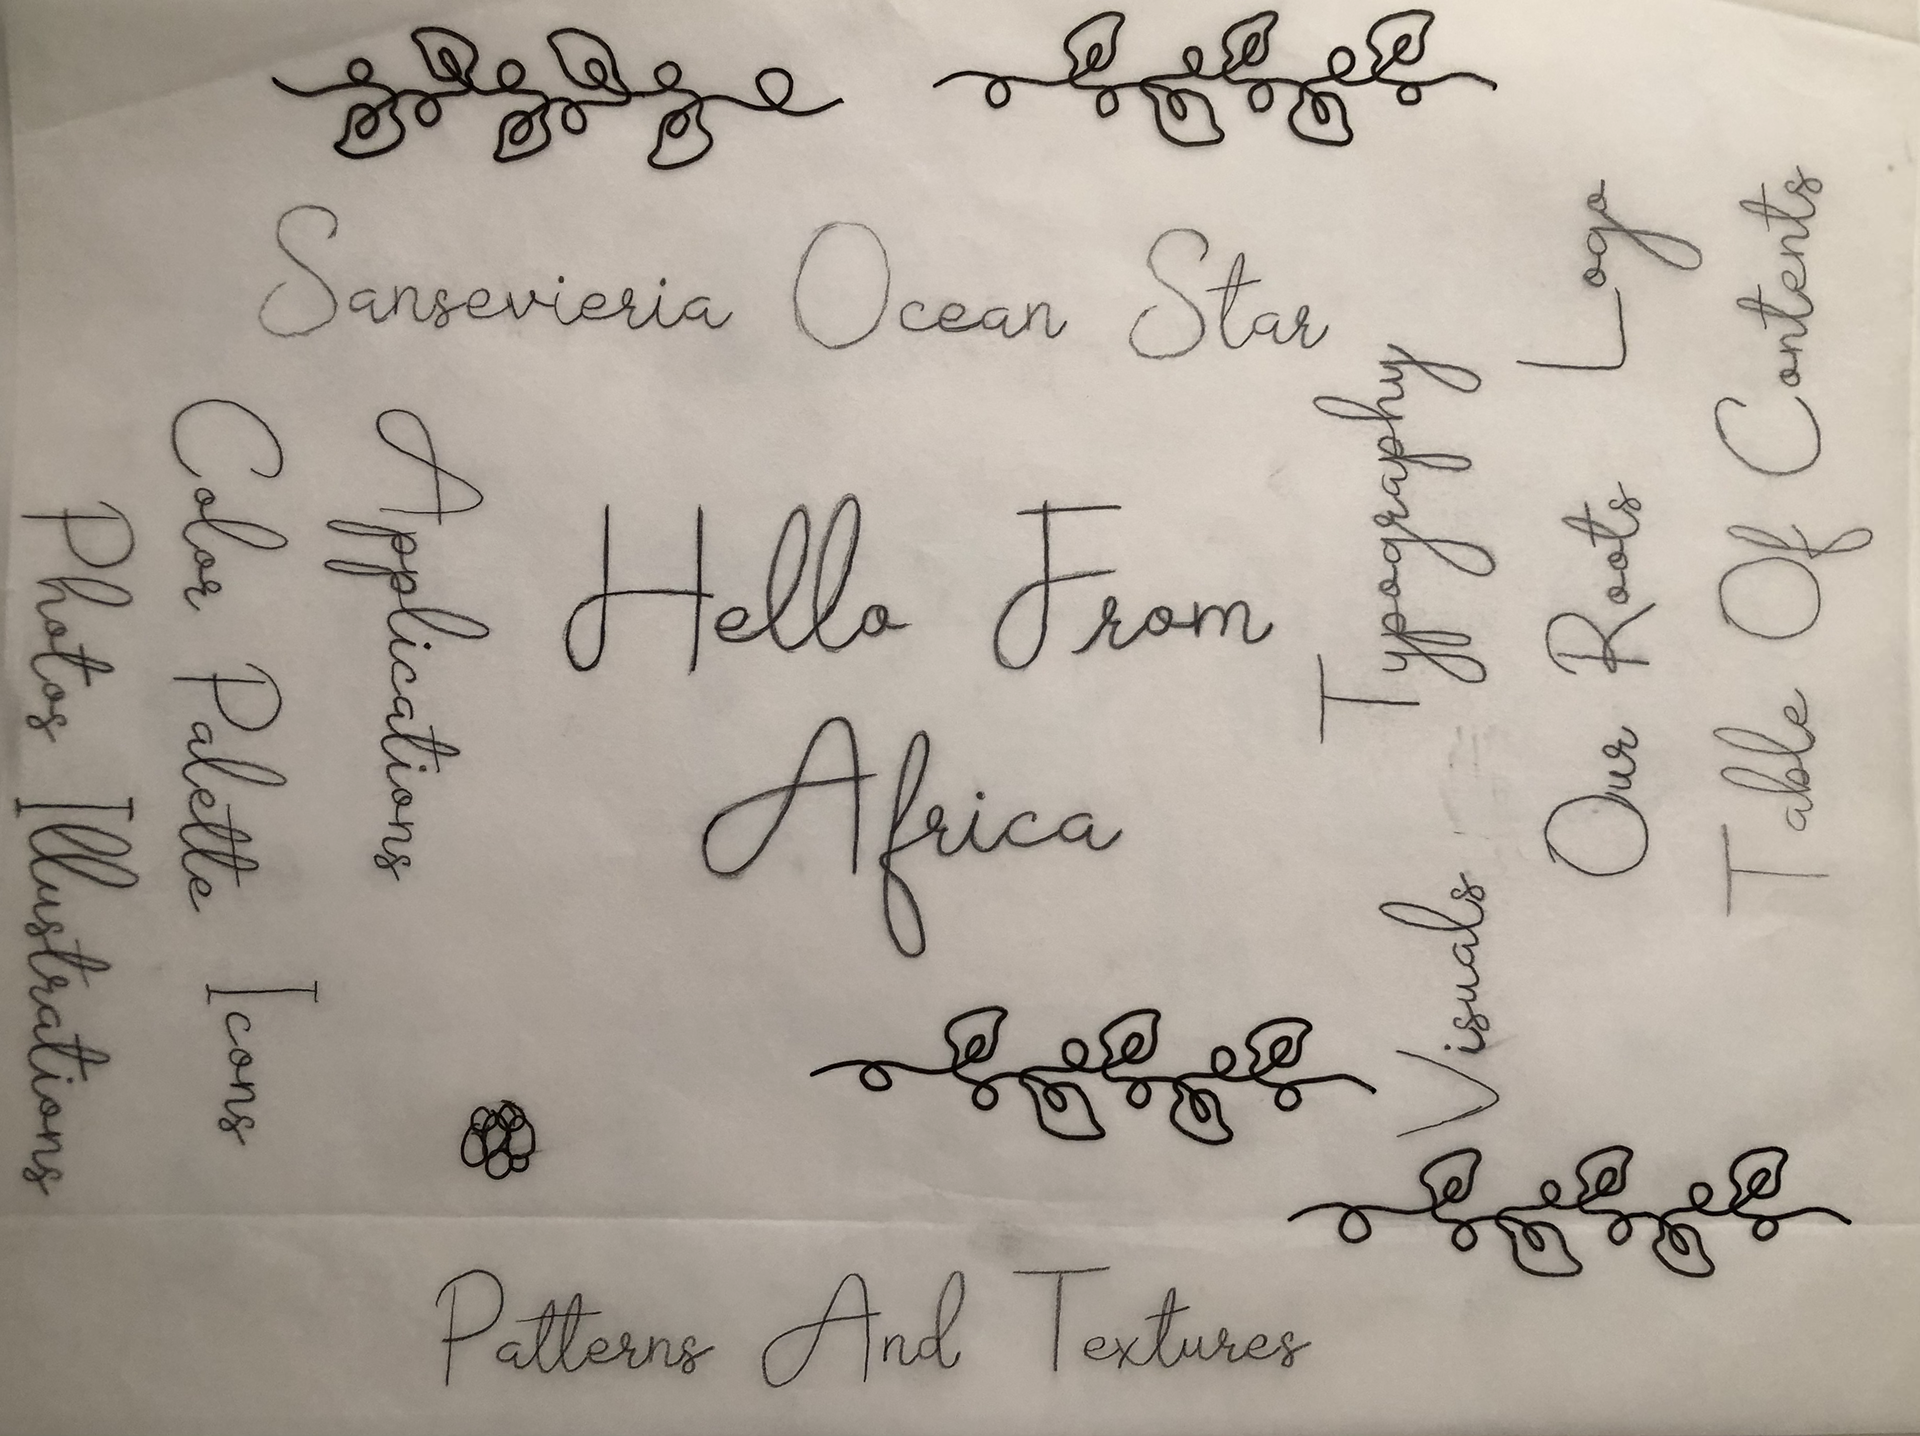 Sansevieria Ocean Star
Hello From
Africa
Applications
Color Palette Icons
Photos Illustrations
Typography
Visuals
Our Roots Logo
Table Of Contents
Patterns And Textures